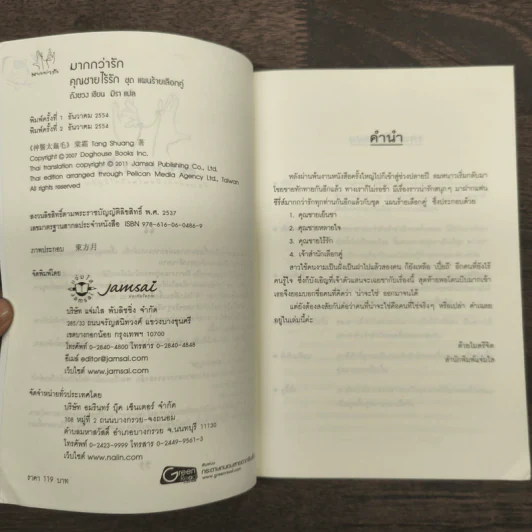 มากกว่ารัก
คุณชายไร้รัก ชุด แผนร้ายเลือกคู่
ถังซวง เขียน มิรา แปล
พิมพ์ครั้งที่ 1 ธันวาคม 2554
พิมพ์ครั้งที่ 2 ธันวาคม 2554
Tang Shuang 著
Copyright © 2007 Doghouse Books Inc.
Thai translation copyright © 2011 Jamsai Publishing Co., Ltd.
Thai edition arranged through Pelican Media Agency Ltd., Taiwan
All Rights Reserved.
สงวนลิขสิทธิ์ตามพระราชบัญญัติลิขสิทธิ์ พ.ศ. 2537
เลขมาตรฐานสากลประจำหนังสือ ISBN 978-616-06-0486-9
ภาพประกอบ 東方月
จัดพิมพ์โดย
jamsai
บริษัท แจ่มใส พับลิชชิ่ง จำกัด
285/33 ถนนจรัญสนิทวงศ์ แขวงบางขุนศรี
เขตบางกอกน้อย กรุงเทพฯ 10700
โทรศัพท์ 0-2840-4800 โทรสาร 0-2840-4848
อีเมล์ editor@jamsai.com
เว็บไซต์ www.jamsai.com
จัดจำหน่ายทั่วประเทศโดย
บริษัท อมรินทร์ บุ๊ค เซ็นเตอร์ จำกัด
108 หมู่ที่ 2 ถนนบางกรวย-จงถนอม
ตำบลมหาสวัสดิ์ อำเภอบางกรวย จ.นนทบุรี 11130
โทรศัพท์ 0-2423-9999 โทรสาร 0-2449-9561-3
เว็บไซต์ www.naiin.com
ราคา 119 บาท
Green
คำนำ
หลังผ่านพ้นงานหนังสือครั้งใหญ่ไปก็เข้าสู่ช่วงปลายปี ลมหนาวเริ่มกลับมา
โชยชายทักทายกันอีกแล้ว ทางเราก็ไม่รอช้า มีเรื่องราวน่ารักสนุกๆ มาฝากแฟน
ซีรี่ส์มากกว่ารักทุกท่านกันอีกแล้วกับชุด 'แผนร้ายเลือกคู่' ซึ่งประกอบด้วย
1. คุณชายเย็นชา
2. คุณชายหลายใจ
3. คุณชายไร้รัก
4. เจ้าสำนักเลือกคู่
อยู่ในเล่มนี้ค่ะ
ด้วยไมตรีจิต
สำนักพิมพ์แจ่มใส